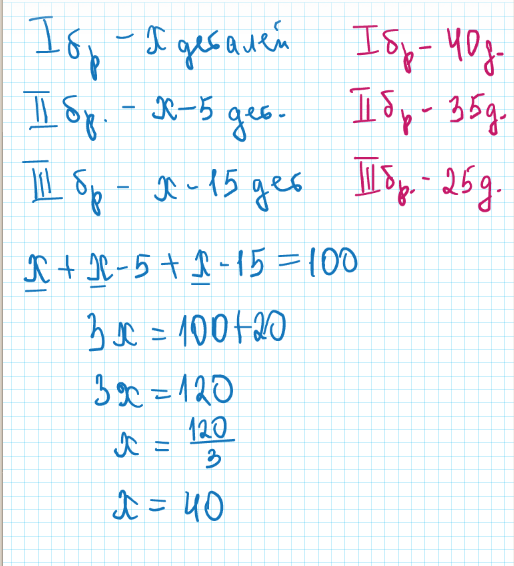 I бр - x деталей I бр - 40 д.
II бр. - x - 5 дет. II бр - 35 д.
III бр - x - 15 дет III бр. - 25 д.
x + x - 5 + x - 15 = 100
3x = 100 + 20
3x = 120
x = 120/3
x = 40